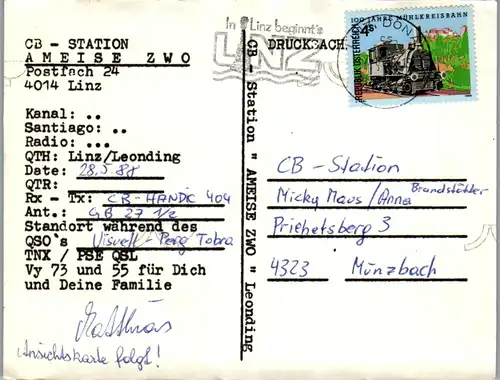 CB - STATION
A M E I S E   Z W O
Postfach 24
4014 Linz
Kanal: ..
Santiago: ..
Radio: ...
QTH: Linz/Leonding
Date: 28.5.88
QTR:
Rx - Tx: CB-HANDIC 404
Ant.: GB 27 1/2
Standort während des
QSO's Visuell - Perg Tobra
TNX / PSE QSL
Vy 73 und 55 für Dich
und Deine Familie
Matthias
Ansichtskarte folgt!
CB - Station " AMEISE ZWO " Leonding
In Linz beginnt's
LINZ
DRUCKSACH
100 JAHRE MÜHLKREISBAHN
4S
REPUBLIK ÖSTERREICH
CB - Station
Micky Maus / Anna Brandstätter
Priehetsberg 3
4323 Münzbach